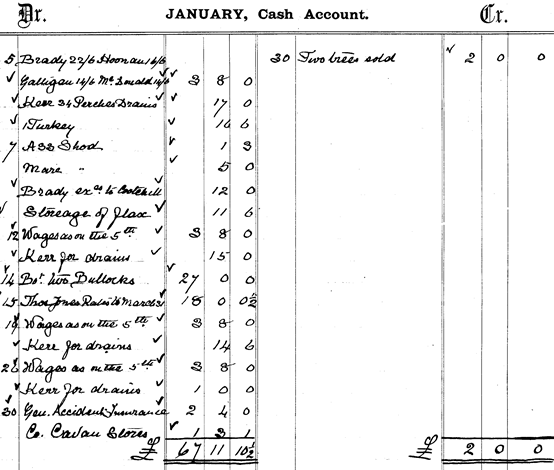 Dr. JANUARY, Cash Account. Cr.
5 Brady 22/6 Hoonan 14/6 30 Two trees sold 2 0 0
Galligan 14/6 McDonald 14/6 3 8 0
Kerr 34 Perches Drains 17 0
1 Turkey 14 6
7 Ass Shod 1 3
Mare " 5 0
Brady exs to Cootehill 12 0
Storeage of flax 11 6
12 Wages as on the 5th 3 8 0
Kerr for drains 15 0
14 Bot two Bullocks 27 0 0
15 Thos Jones Rates to March 31 18 0 0½
19 Wages as on the 5th 3 8 0
Kerr for drains 14 6
26 Wages as on the 5th 3 8 0
Kerr for drains 1 0 0
30 Gen. Accident Insurance 2 4 0
Co. Cavan Stores 1 3 1
£ 67 11 10½ £ 2 0 0